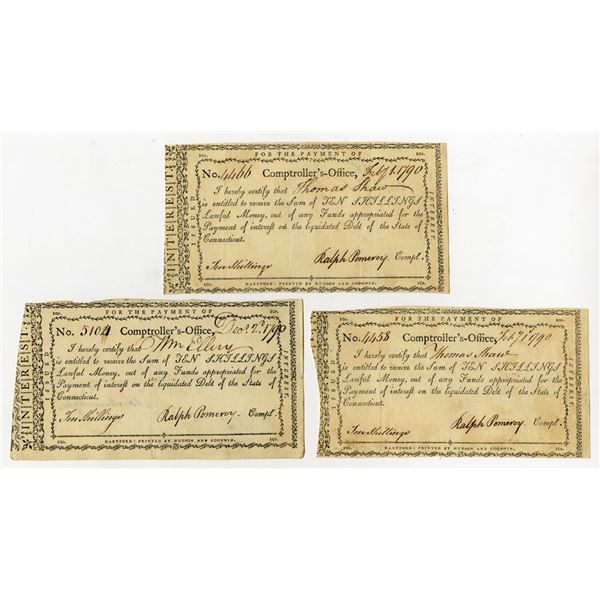 10s. FOR THE PAYMENT OF 10s.
No. 4466 Comptroller's-Office, Feby 1 1790
I hereby certify that Thomas Shaw
is entitled to receive the Sum of TEN SHILLINGS
Lawful Money, out of any Funds appropriated for the
Payment of interest on the liquidated Debt of the State of
Connecticut.
Ten Shillings Ralph Pomeroy Compt.
10s. HARTFORD: PRINTED BY HUDSON AND GOODWIN. 10s.
INTEREST
ISSUED
INTEREST.
FOR THE PAYMENT OF
No. 5104 Comptroller's-Office, Decr. 2d. 1790
I hereby certify that Wm Ellery
is entitled to receive the Sum of TEN SHILLINGS
Lawful Money, out of any Funds appropriated for the
Payment of interest on the liquidated Debt of the State of
Connecticut.
Ten Shillings Ralph Pomeroy Compt.
10s. HARTFORD: PRINTED BY HUDSON AND GOODWIN. 10s.
INTEREST
ISSUED
INTEREST.
10s. FOR THE PAYMENT OF 10s.
No. 4458 Comptroller's-Office, Feby 1 1790
I hereby certify that Thomas Shaw
is entitled to receive the Sum of TEN SHILLINGS
Lawful Money, out of any Funds appropriated for the
Payment of interest on the liquidated Debt of the State of
Connecticut.
Ten Shillings Ralph Pomeroy Compt.
10s. HARTFORD: PRINTED BY HUDSON AND GOODWIN. 10s.
ISSUED
INTEREST.